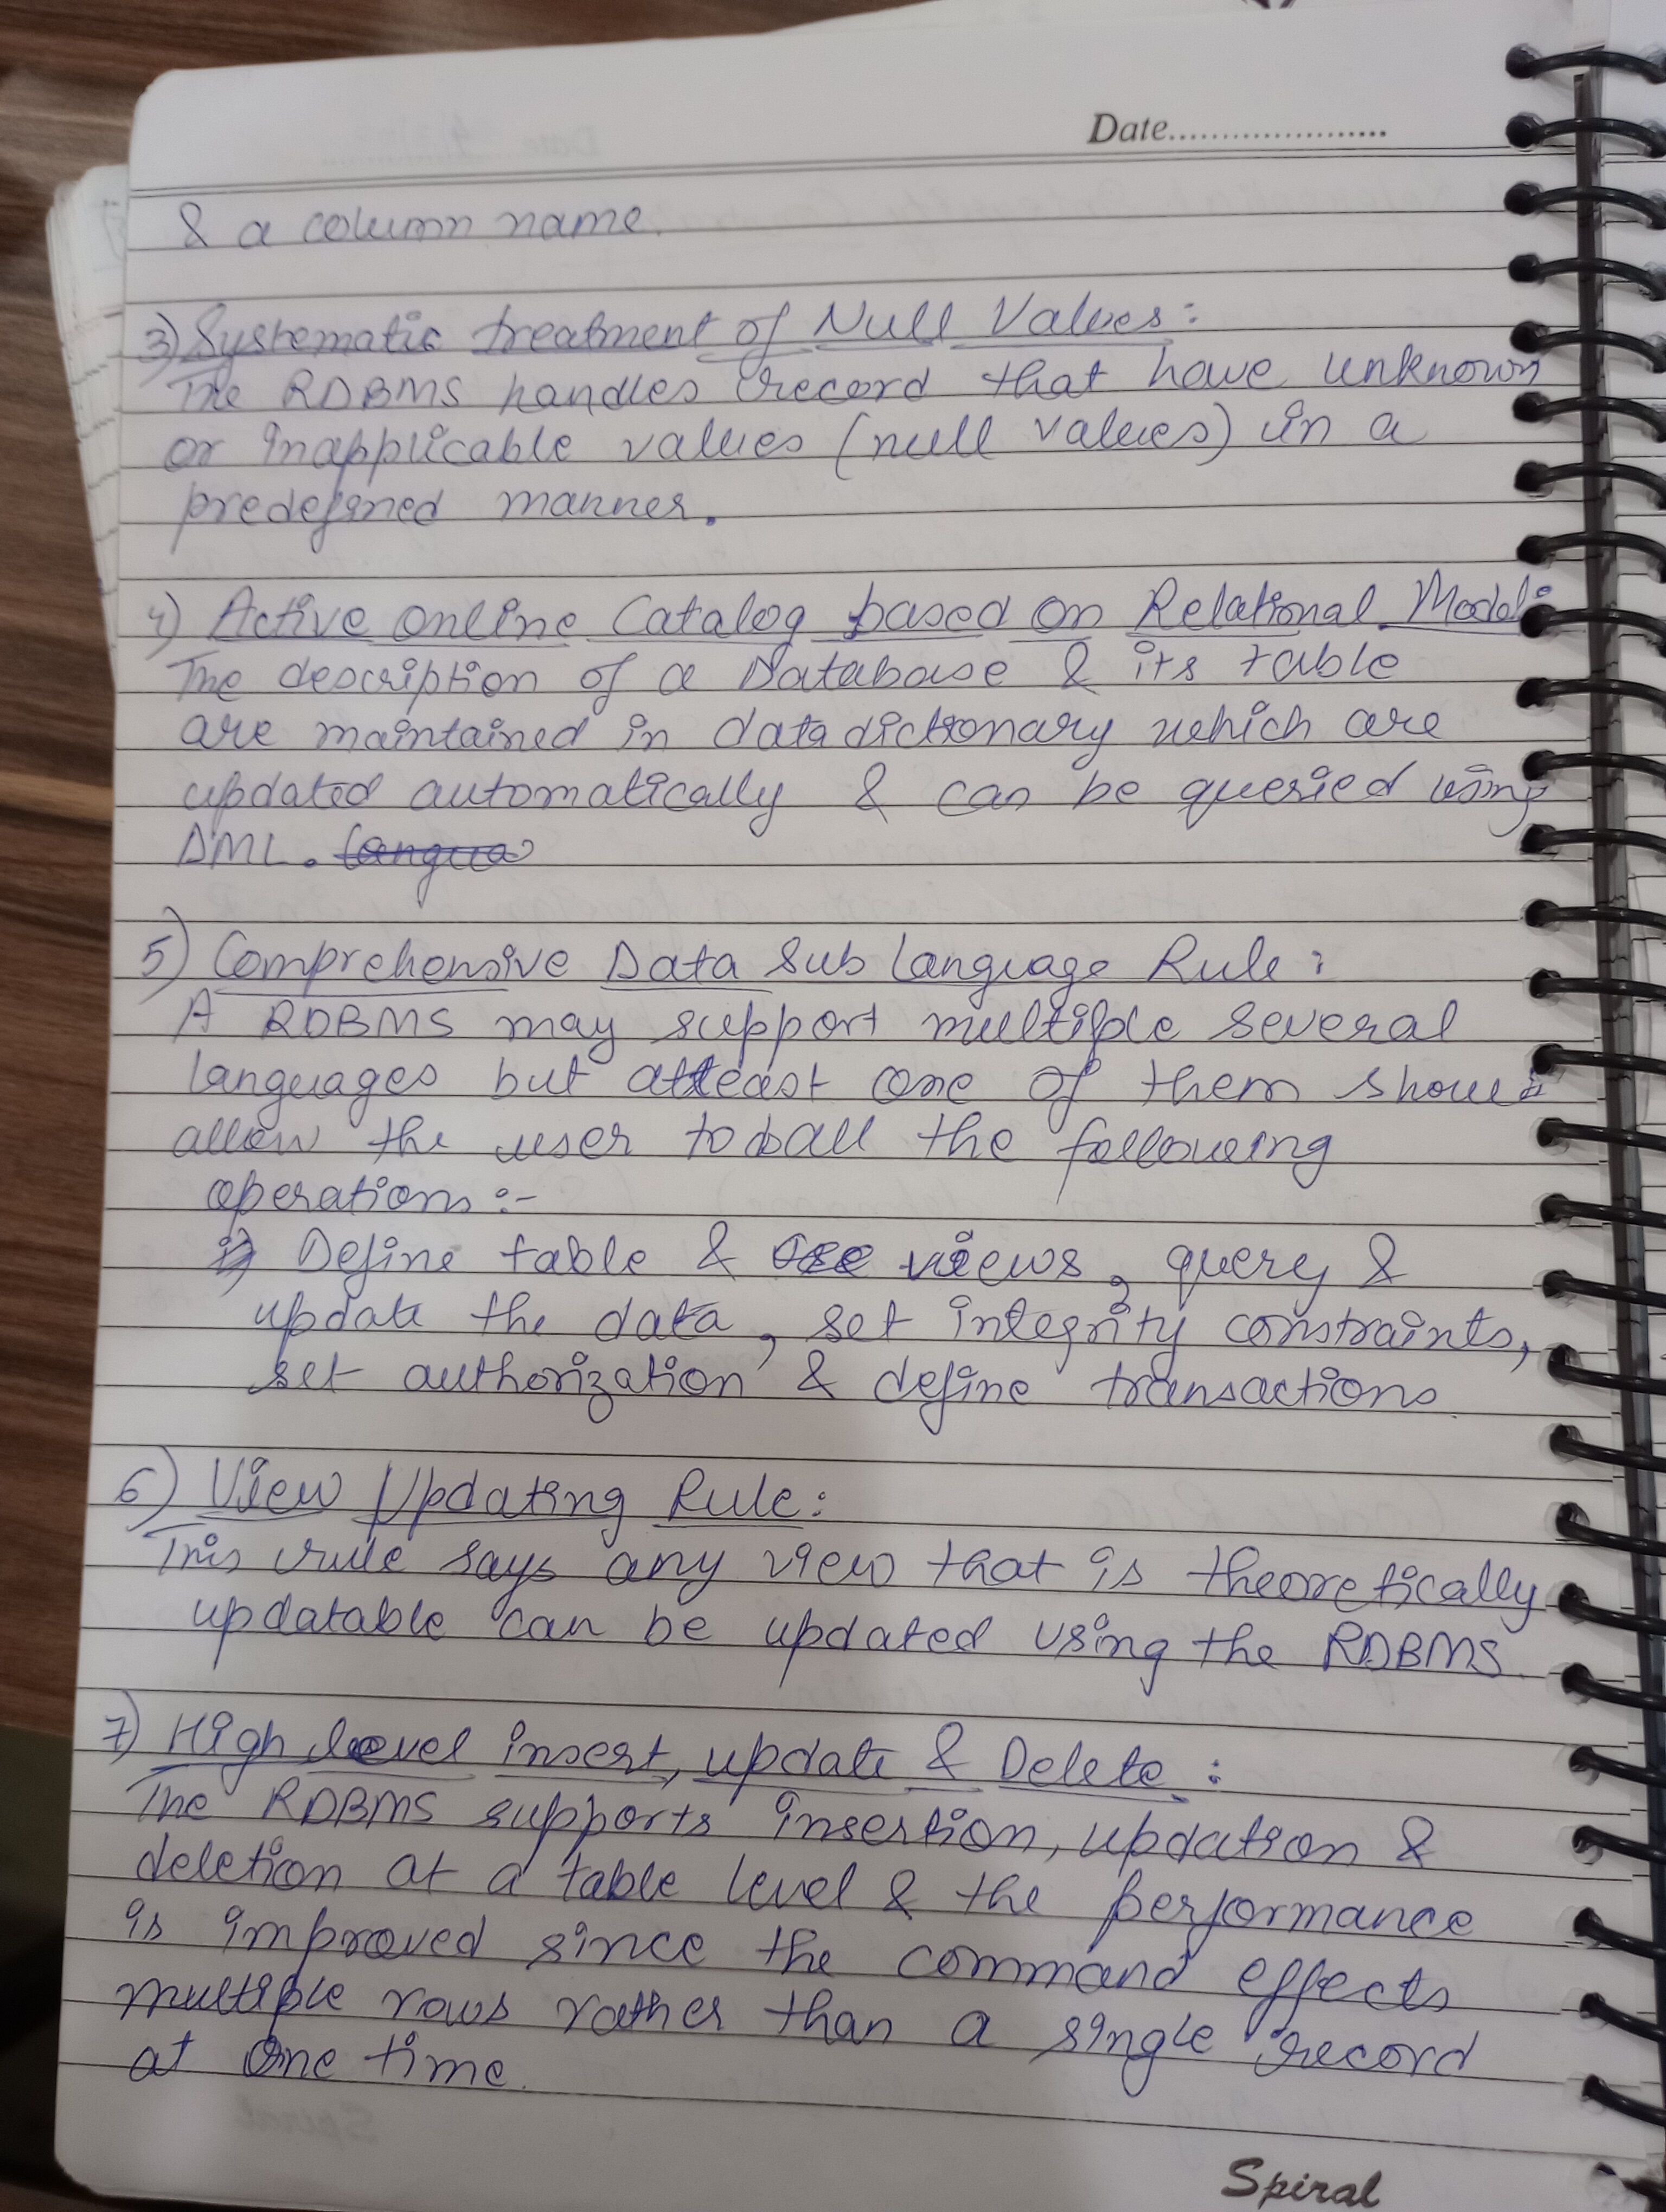 Date.....................
& a column name.
3) Systematic treatment of Null Values:
The RDBMS handles record that have unknown
or inapplicable values (null values) in a
predefined manner.
4) Active online Catalog based on Relational Model:
The description of a Database & its table
are maintained in data dictionary which are
updated automatically & can be queried using
DML. Langua
5) Comprehensive Data Sub Language Rule:
A RDBMS may support multiple several
languages but atleast one of them should
allow the user to do all the following
operations :-
i) Define table & views, query &
update the data, set integrity constraints,
set authorization & define transactions.
6) View Updating Rule:
This rule says any view that is theoretically
updatable can be updated using the RDBMS.
7) High level insert, update & Delete :
The RDBMS supports insertion, updation &
deletion at a table level & the performance
is improved since the command effects
multiple rows rather than a single record
at one time.
Spiral